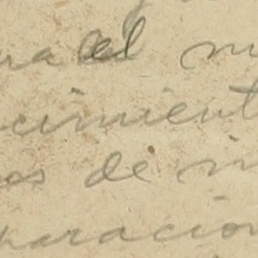 ra el m
cimient
os de in
paracion